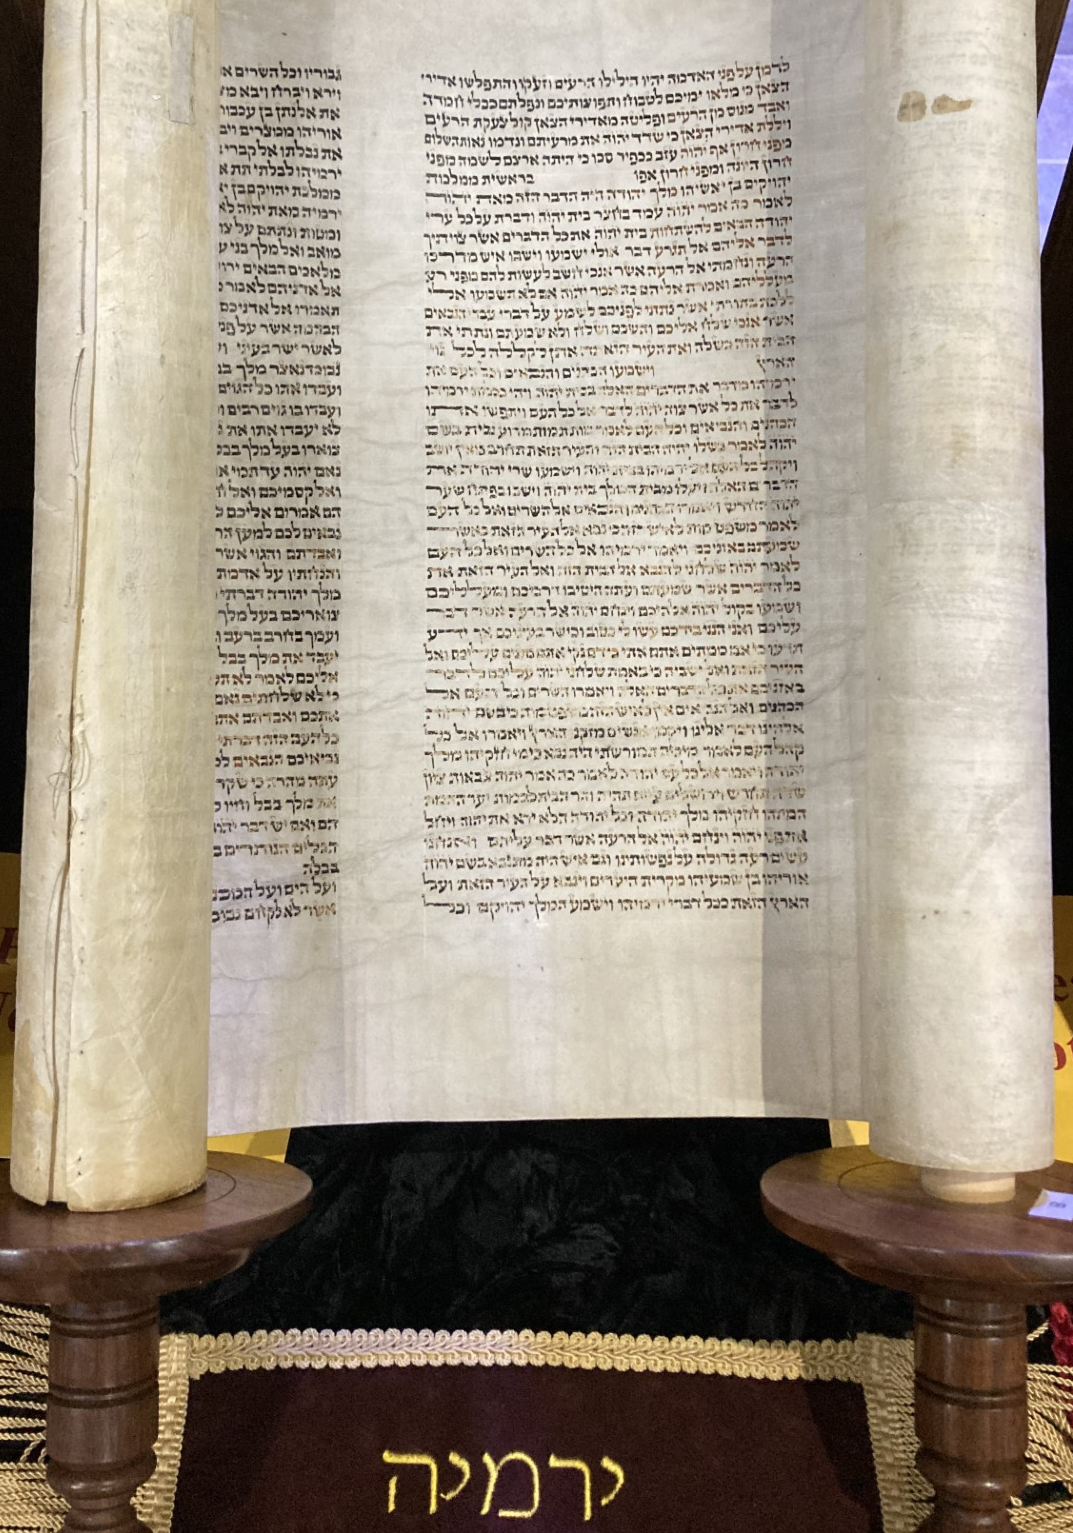 לדמן על פני האדמה יהיו הילילו הרעים וזעקו והתפלשו אדירי
הצאן כי מלאו ימיכם לטבוח ותפוצותיכם ונפלתם ככלי חמדה
ואבד מנוס מן הרעים ופליטה מאדירי הצאן קול צעקת הרעים
ויללת אדירי הצאן כי שדד יהוה את מרעיתם ונדמו נאות השלום
מפני חרון אף יהוה עזב ככפיר סכו כי היתה ארצם לשמה מפני
חרון היונה ומפני חרון אפו בראשית ממלכות
יהויקים בן יאשיהו מלך יהודה היה הדבר הזה מאת יהוה
לאמר כה אמר יהוה עמד בחצר בית יהוה ודברת על כל ערי
יהודה הבאים להשתחות בית יהוה את כל הדברים אשר צויתיך
לדבר אליהם אל תגרע דבר אולי ישמעו וישבו איש מדרכו
הרעה ונחמתי אל הרעה אשר אנכי חשב לעשות להם מפני רע
מעלליהם ואמרת אליהם כה אמר יהוה אם לא תשמעו אלי
ללכת בתורתי אשר נתתי לפניכם לשמע על דברי עבדי הנבאים
אשר אנכי שלח אליכם והשכם ושלח ולא שמעתם ונתתי את
הבית הזה כשלה ואת העיר הזאת אתן לקללה לכל גוי
הארץ וישמעו הכהנים והנבאים וכל העם את
ירמיהו מדבר את הדברים האלה בבית יהוה ויהי ככלות ירמיהו
לדבר את כל אשר צוה יהוה לדבר אל כל העם ויתפשו אתו
הכהנים והנביאים וכל העם לאמר מות תמות מדוע נבית בשם
יהוה לאמר כשלו יהיה הבית הזה והעיר הזאת תחרב מאין יושב
ויקהל כל העם אל ירמיהו בבית יהוה וישמעו שרי יהודה את
הדברים האלה ויעלו מבית המלך בית יהוה וישבו בפתח שער
יהוה החדש ויאמרו הכהנים והנבאים אל השרים ואל כל העם
לאמר משפט מות לאיש הזה כי נבא אל העיר הזאת כאשר
שמעתם באזניכם ויאמר ירמיהו אל כל השרים ואל כל העם
לאמר יהוה שלחני להנבא אל הבית הזה ואל העיר הזאת את
כל הדברים אשר שמעתם ועתה היטיבו דרכיכם ומעלליכם
ושמעו בקול יהוה אלהיכם וינחם יהוה אל הרעה אשר דבר
עליכם ואני הנני בידכם עשו לי כטוב וכישר בעיניכם אך ידע
תדעו כי אם ממתים אתם אתי כי דם נקי אתם נתנים עליכם ואל
העיר הזאת ואל ישביה כי באמת שלחני יהוה עליכם לדבר
באזניכם את כל הדברים האלה ויאמרו השרים וכל העם אל
הכהנים ואל הנביאים אין לאיש הזה משפט מות כי בשם יהוה
אלהינו דבר אלינו ויקמו אנשים מזקני הארץ ויאמרו אל כל
קהל העם לאמר מיכיה המורשתי היה נבא בימי חזקיהו מלך
יהודה ויאמר אל כל עם יהודה לאמר כה אמר יהוה צבאות ציון
שדה תחרש וירושלים עיים תהיה והר הבית לבמות יער ההמת
המתהו חזקיהו מלך יהודה וכל יהודה הלא ירא את יהוה ויחל
את פני יהוה וינחם יהוה אל הרעה אשר דבר עליהם ואנחנו
עשים רעה גדולה על נפשותינו וגם איש היה מתנבא בשם יהוה
אוריהו בן שמעיהו מקרית היערים וינבא על העיר הזאת ועל
הארץ הזאת ככל דברי ירמיהו וישמע המלך יהויקים וכל
גבוריו וכל השרים
וירא ויברח ויבא
את אלנתן בן עכבור
אוריהו ממצרים
את נבלתו אל קברי
ירמיהו לבלתי תת
ממלכת יהויקם בן
ירמיה מאת יהוה
ומטות ונתתם על
מואב ואל מלך בני
מלאכים הבאים
אל אדניהם לאמר
תאמרו אל אדניכם
הבהמה אשר על
לאשר ישר בעיני
נבוכדנאצר מלך
ועבדו אתו כל הגוים
ועבדו בו גוים רבים
לא יעבדו אתו את
צוארו בעל מלך
נאם יהוה עד תמי
ואל קסמיכם ואל
הם אמרים אליכם
נבאים לכם למען
ואבדתם והגוי אשר
והנחתיו על אדמתו
מלך יהודה דברתי
צואריכם בעל מלך
ועמך בחרב ברעב
יעבד את מלך בבל
אליכם לאמר לא
כי לא שלחתים נאם
אתכם ואבדתם אתם
כל העם הזה דברתי
נביאיכם הנבאים
עתה מהרה כי שקר
את מלך בבל וחיו
הם ואם יש דבר
הכלים הנותרים
בבלה
ועל הים ועל המכנות
אשר לא לקחם
ירמיה